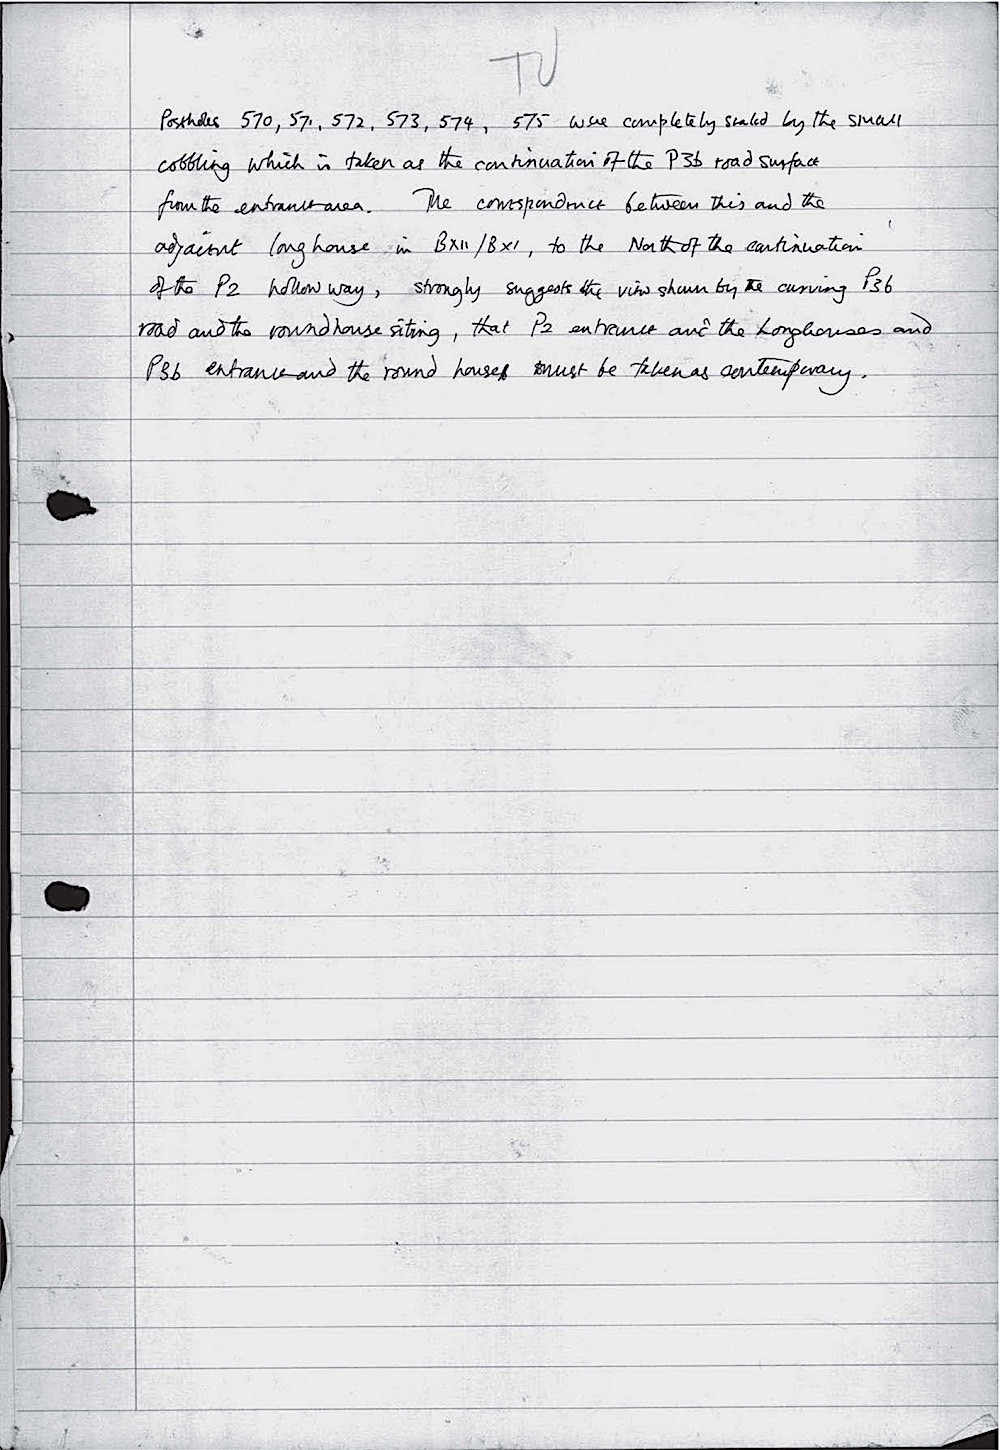 TU
Postholes 570, 571, 572, 573, 574, 575 were completely sealed by the small
cobbling which is taken as the continuation of the P3b road surface
from the entrance area. The correspondence between this and the
adjacent longhouse in BXII/BXI, to the North of the continuation
of the P2 hollow way, strongly suggests the view shown by the curving P3b
road and the roundhouse siting, that P2 entrance and the longhouses and
P3b entrance and the round houses must be taken as contemporary.